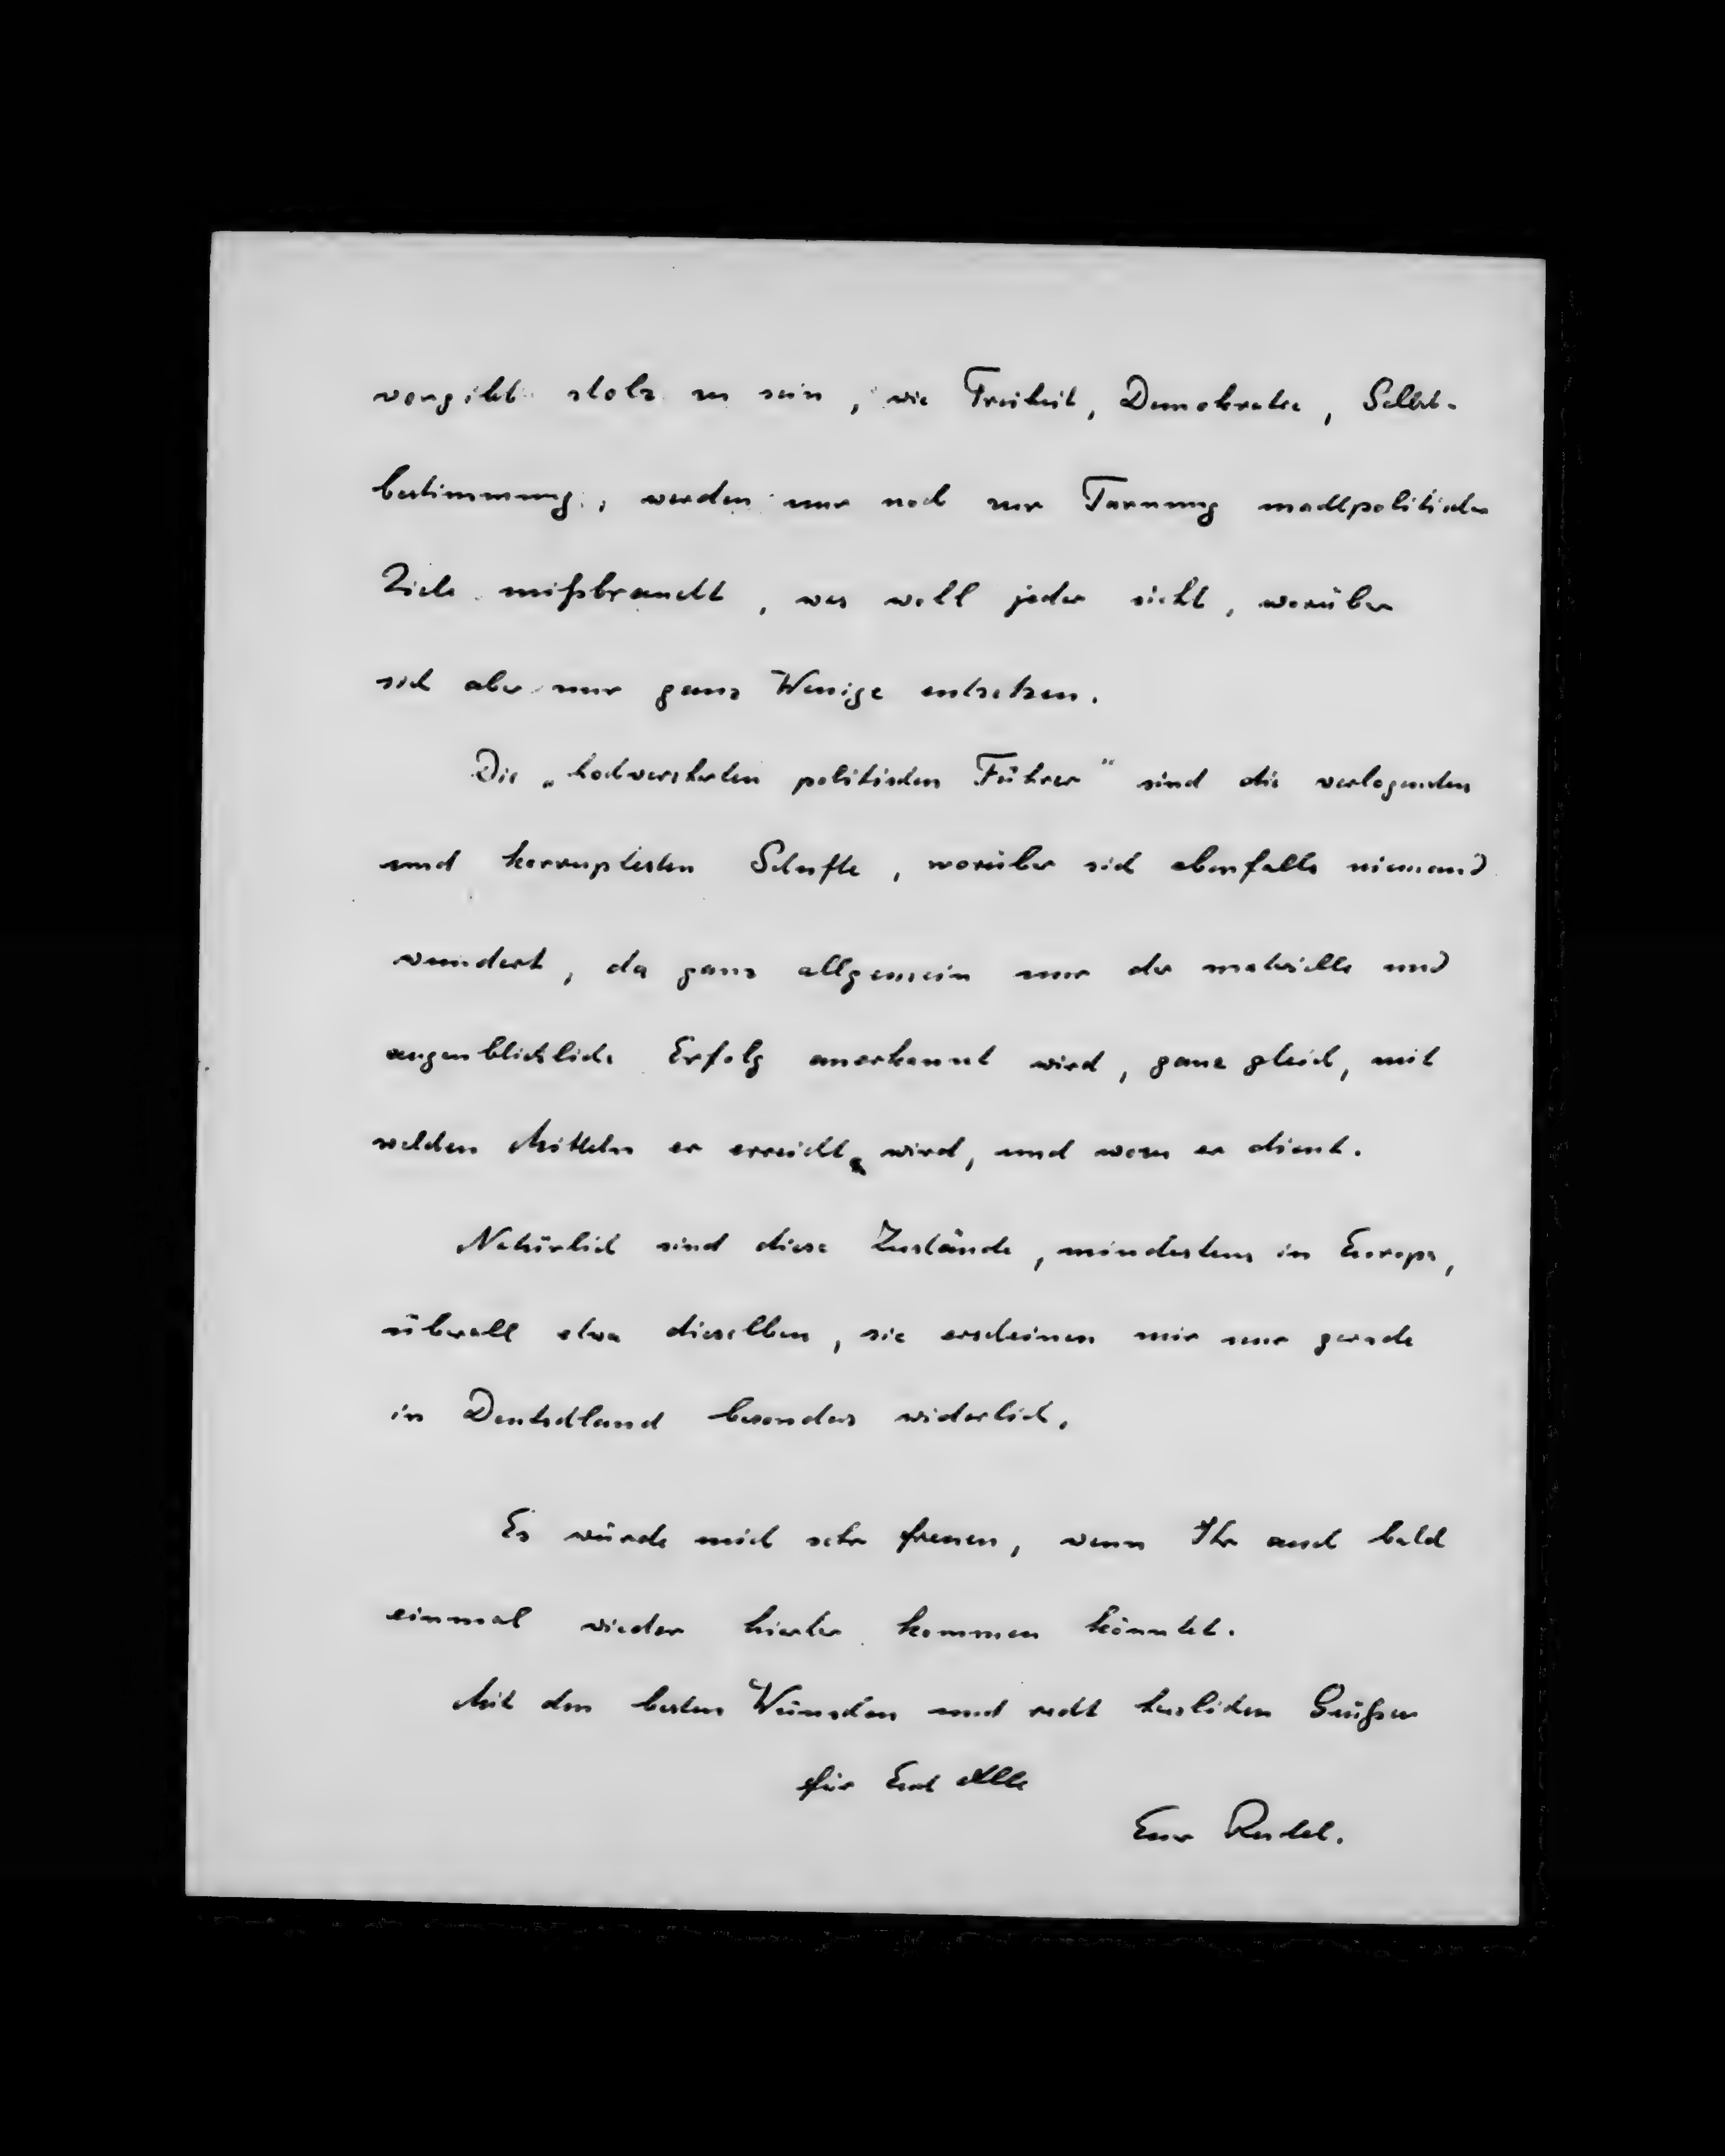 vorgibt stolz zu sein, wie Freiheit, Demokratie, Selbst-
bestimmung, werden nur noch zur Tarnung machtpolitischer
Ziele mißbraucht, was wohl jeder sieht, worüber
sich aber nur ganz Wenige entsetzen.
Die „hochverehrten politischen Führer" sind die verlogensten
und korruptesten Schufte, worüber sich ebenfalls niemand
wundert, da ganz allgemein nur der materielle und
augenblickliche Erfolg anerkannt wird, ganz gleich, mit
welchen Mitteln er erreicht wird, und wozu er dient.
Natürlich sind diese Zustände, mindestens in Europa,
überall etwa dieselben, sie erscheinen mir nur gerade
in Deutschland besonders widerlich.
Es würde mich sehr freuen, wenn Ihr auch bald
einmal wieder hierher kommen könntet.
Mit den besten Wünschen und recht herzlichen Grüßen
für Euch Alle
Euer